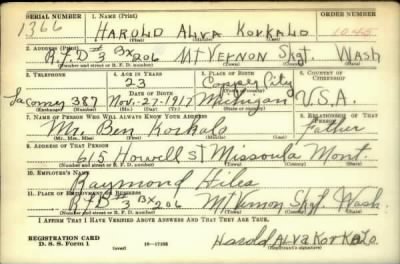 SERIAL NUMBER 1. NAME (Print) ORDER NUMBER
1366 HAROLD ALVA KORKALO 1045
(First) (Middle) (Last)
2. ADDRESS (Print)
R.F.D # 3 Bx 206 MT VERNON Skgt. WASH
(Number and street or R. F. D. number) (Town) (County) (State)
3. TELEPHONE 4. AGE IN YEARS 5. PLACE OF BIRTH 6. COUNTRY OF CITIZENSHIP
23 Copper City
DATE OF BIRTH
387 Nov.-27-1917 Michigan U.S.A.
(Exchange) (Number) (Mo.) (Day) (Yr.) (State or country)
7. NAME OF PERSON WHO WILL ALWAYS KNOW YOUR ADDRESS 8. RELATIONSHIP OF THAT PERSON
Mr. Ben Korkalo Father
(Mr., Mrs., Miss) (First) (Middle) (Last)
9. ADDRESS OF THAT PERSON
615 Howell St Missoula Mont.
(Number and street or R. F. D. number) (Town) (County) (State)
10. EMPLOYER'S NAME
Raymond Hiles
11. PLACE OF EMPLOYMENT OR BUSINESS
R.F.D # 3 Bx 206 Mt Vernon Skgt. Wash.
(Number and street or R. F. D. number) (Town) (County) (State)
I AFFIRM THAT I HAVE VERIFIED ABOVE ANSWERS AND THAT THEY ARE TRUE.
REGISTRATION CARD
D. S. S. Form 1 (over) 16-17105 Harold ALVA KORKALO
(Registrant's signature)